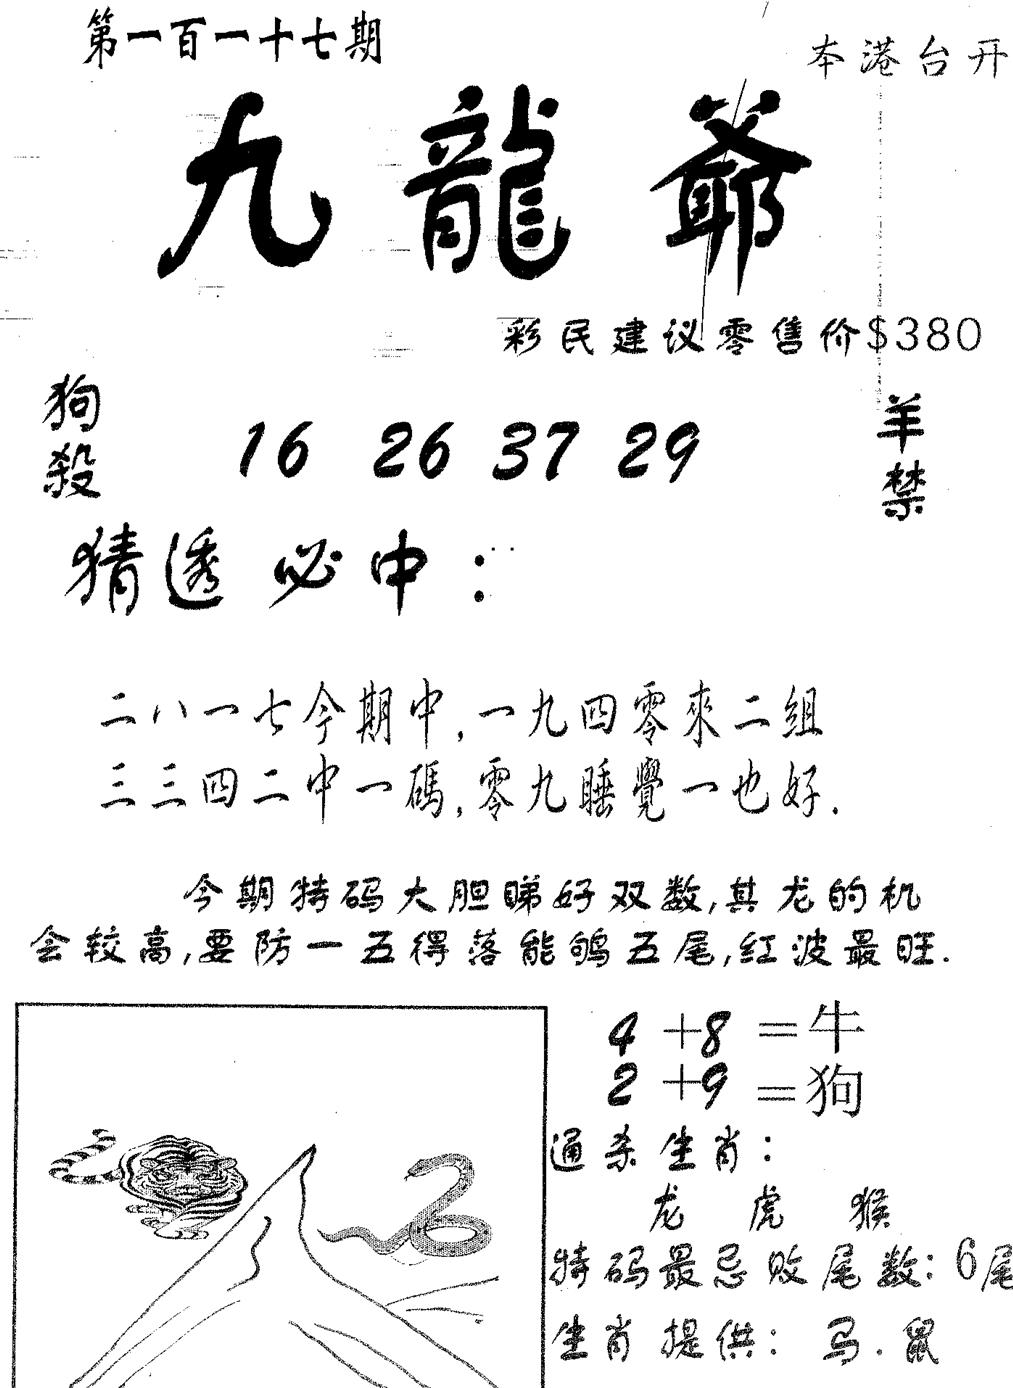 第一百一十七期
本港台开
九龍爺
彩民建议零售价$380
狗殺
16 26 37 29
羊禁
猜透必中：
二八一七今期中,一九四零來二组
三三四二中一碼,零九睡覺一也好.
今期特码大胆睇好双数,其龙的机
会较高,要防一五得落能鸲五尾,红波最旺.
4+8=牛
2+9=狗
通杀生肖：
龙 虎 猴
特码最忌败尾数：6尾
生肖提供：马.鼠